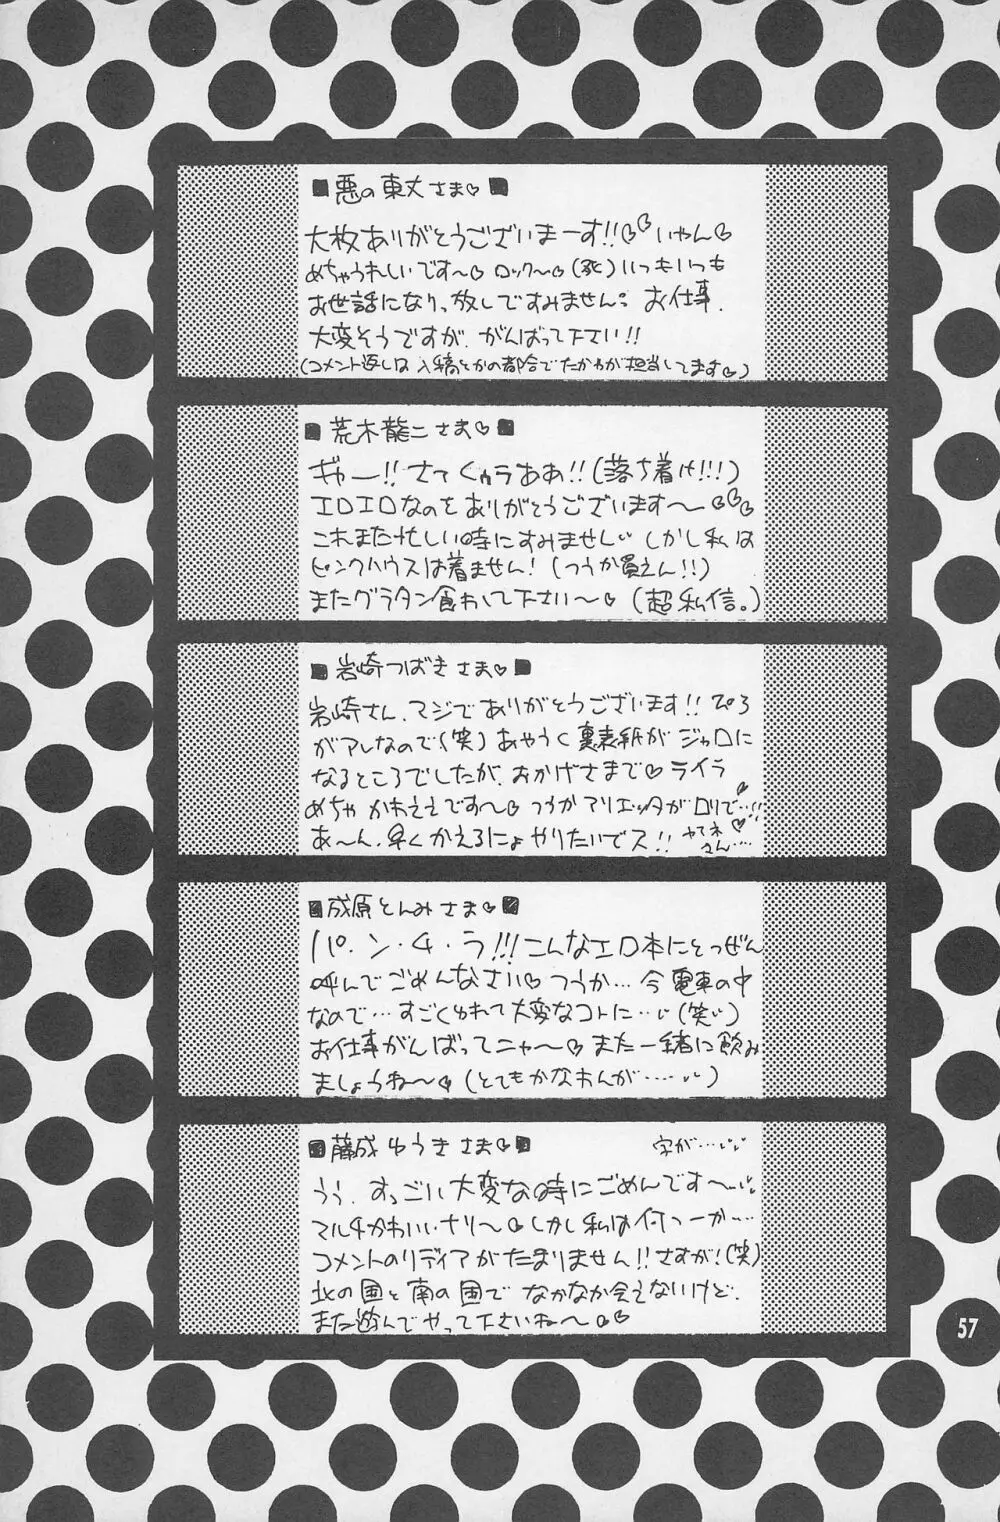 ■悪の東丈さま♡■
大枚ありがとうございまーす!!♡♡いやん♡
めちゃうれしいです〜♡ロック〜♡(死)いつもいつも
お世話になりっ放しですみません お仕事、
大変そうですが、がんばって下さい!!
(コメント返しは入稿とかの都合でたかやが担当してます♡)
■荒木龍二さま♡■
ギャー!!さてくぅラああ!!(落ち着け!!!)
エロエロなのをありがとうございます〜♡♡♡
これまた忙しい時にすみません しかし私は
ピンクハウスは着ません!(つうか買えん!!)
またグラタン食わして下さい〜♡(超私信。)
■岩崎つばきさま♡■
岩崎さん、マジでありがとうございます!!ぴろ
がアレなので(笑)あやうく裏表紙がジャロに
なるところでしたが、おかげさまで♡ライラ
めちゃかわええです〜♡つうかアリエッタがロリで…!!
あ〜ん、早くかえるにょやりたいでス!!
さん…
■成原とんみさま♡■
パ・ン・チ・ラ!!!こんなエロ本にとつぜん
呼んでごめんなさい♡つうか…今電車の中
なので…すごくゆれて大変なコトに…(笑)
お仕事がんばってニャ〜♡また一緒に飲み
ましょうね〜♡(とてもかなわんが……)
■藤成ゆうきさま♡■ 字が…
うぅ、すっごい大変な時にごめんです〜
マルチかわいいナリ〜♡しかし私は付っーか…
コメントのリディアがたまりません!!さすが!(笑)
北の国と南の国でなかなか会えないけど、
また遊んでやって下さいね〜♡♡
57